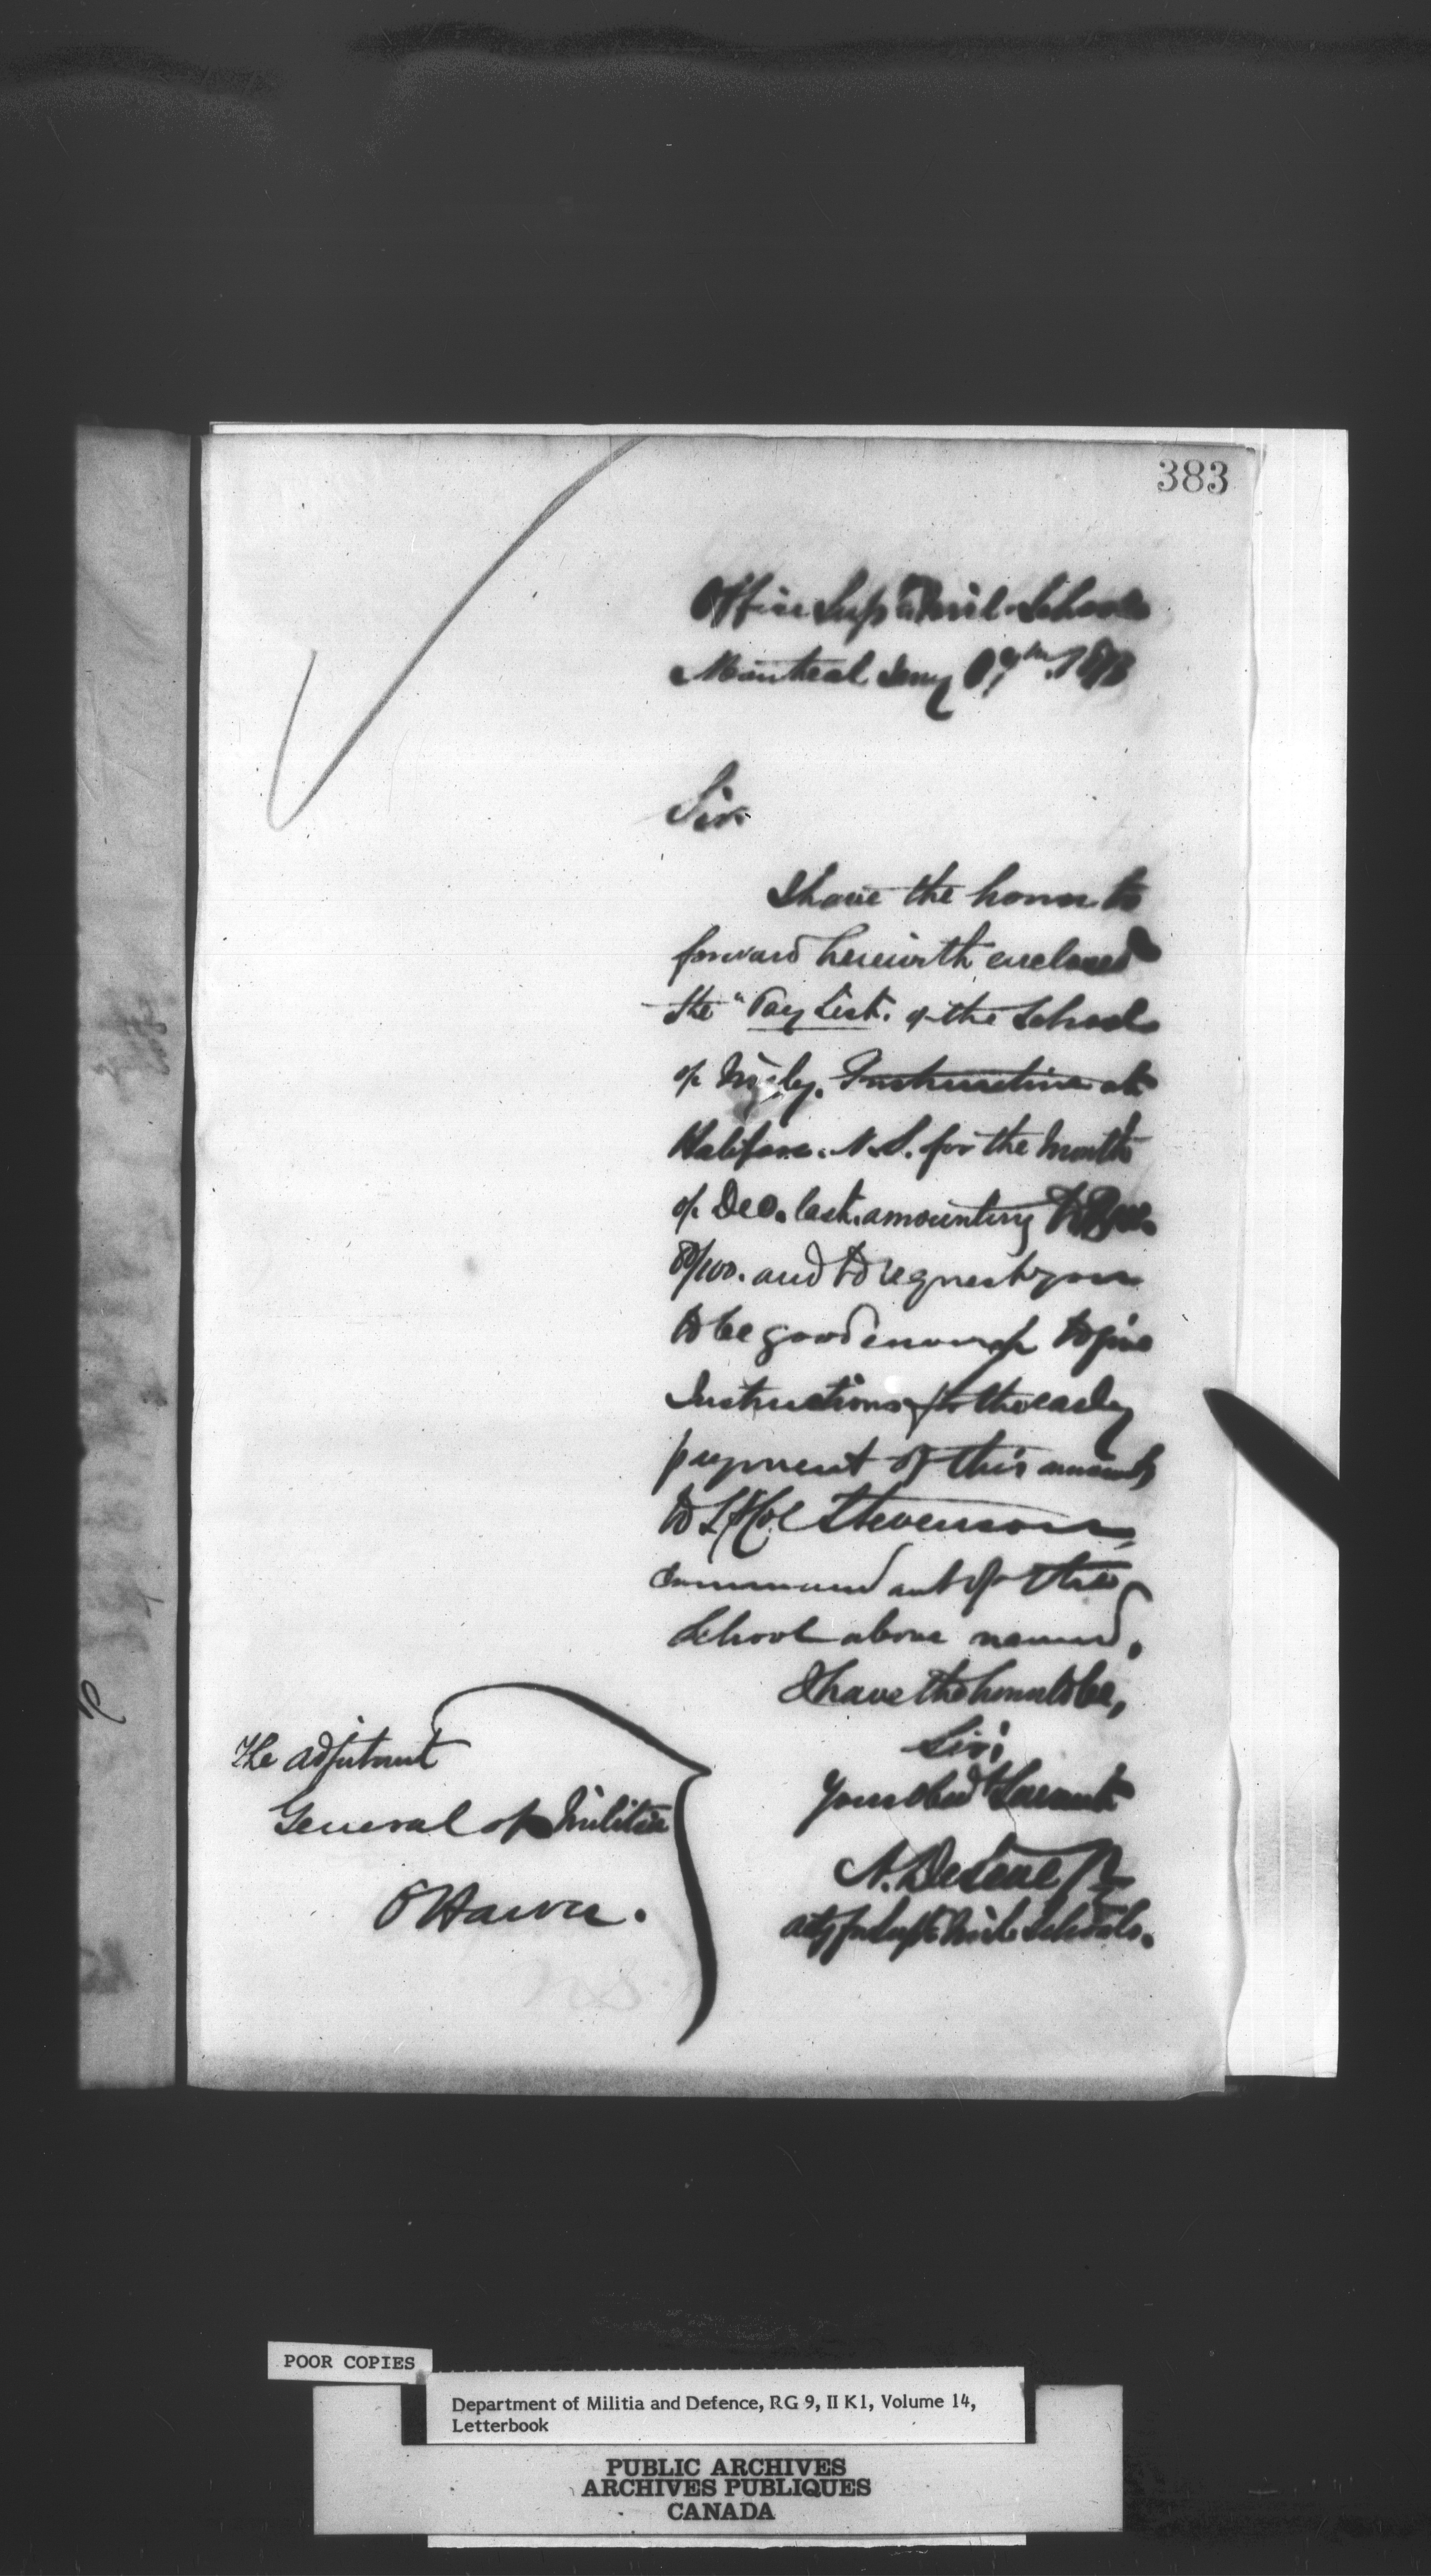 383
Office Supt Mil. Schools
Montreal Jany 1873
Sir
I have the honor to
forward herewith enclosed
the "Pay List. of the School
of Mily. Instruction at
Halifax. N.S. for the Month
of Dec. last. amounting to
80/100. and to request you
to be good enough to give
Instructions for the early
payment of this amount,
to Lt Col Stevenson
Commandant of the
School above named.
I have the honor to be,
Sir;
Your obedt Servant
The Adjutant
General of Militia
Ottawa.
A.
actg for Supt Mil. Schools.
POOR COPIES
Department of Militia and Defence, RG 9, II K1, Volume 14,
Letterbook
PUBLIC ARCHIVES
ARCHIVES PUBLIQUES
CANADA